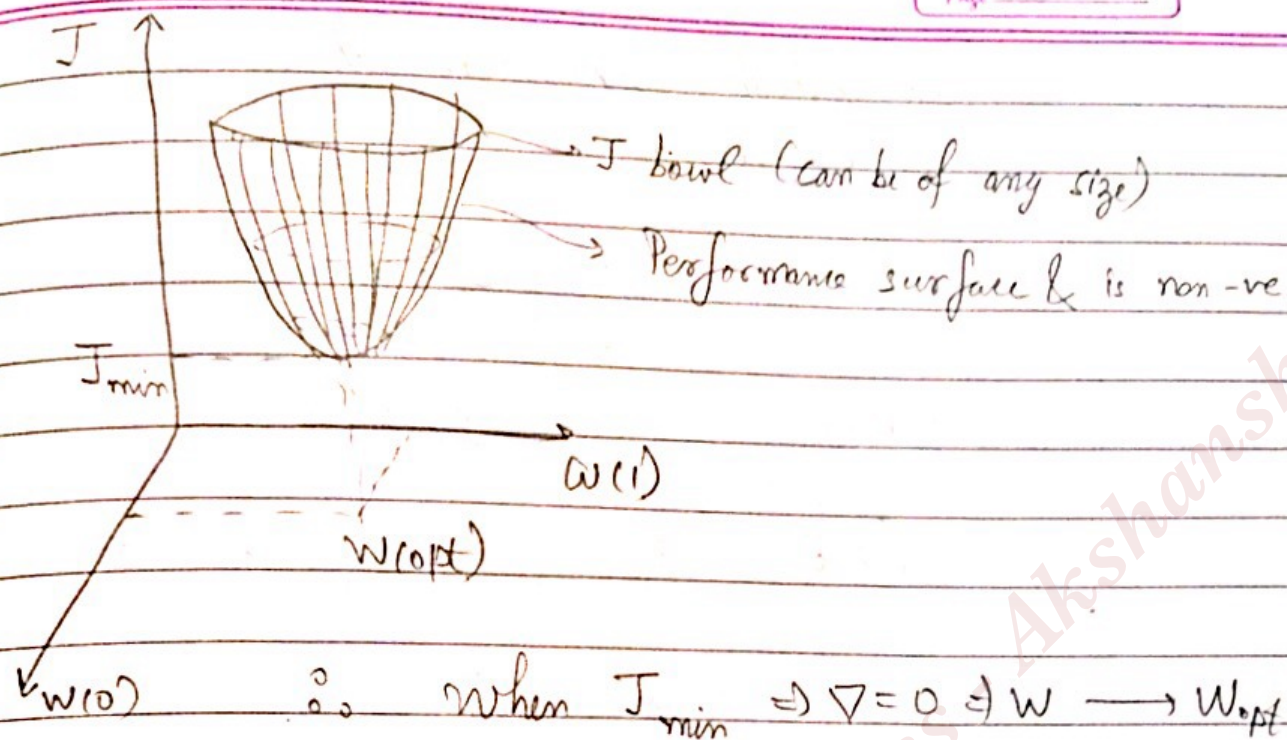 J
J bowl (can be of any size)
Performance surface & is non-ve
J min
W(1)
W(opt)
W(0)
∴ When J min ⇒ ∇ = 0 ⇒ W → Wopt
Akshansh